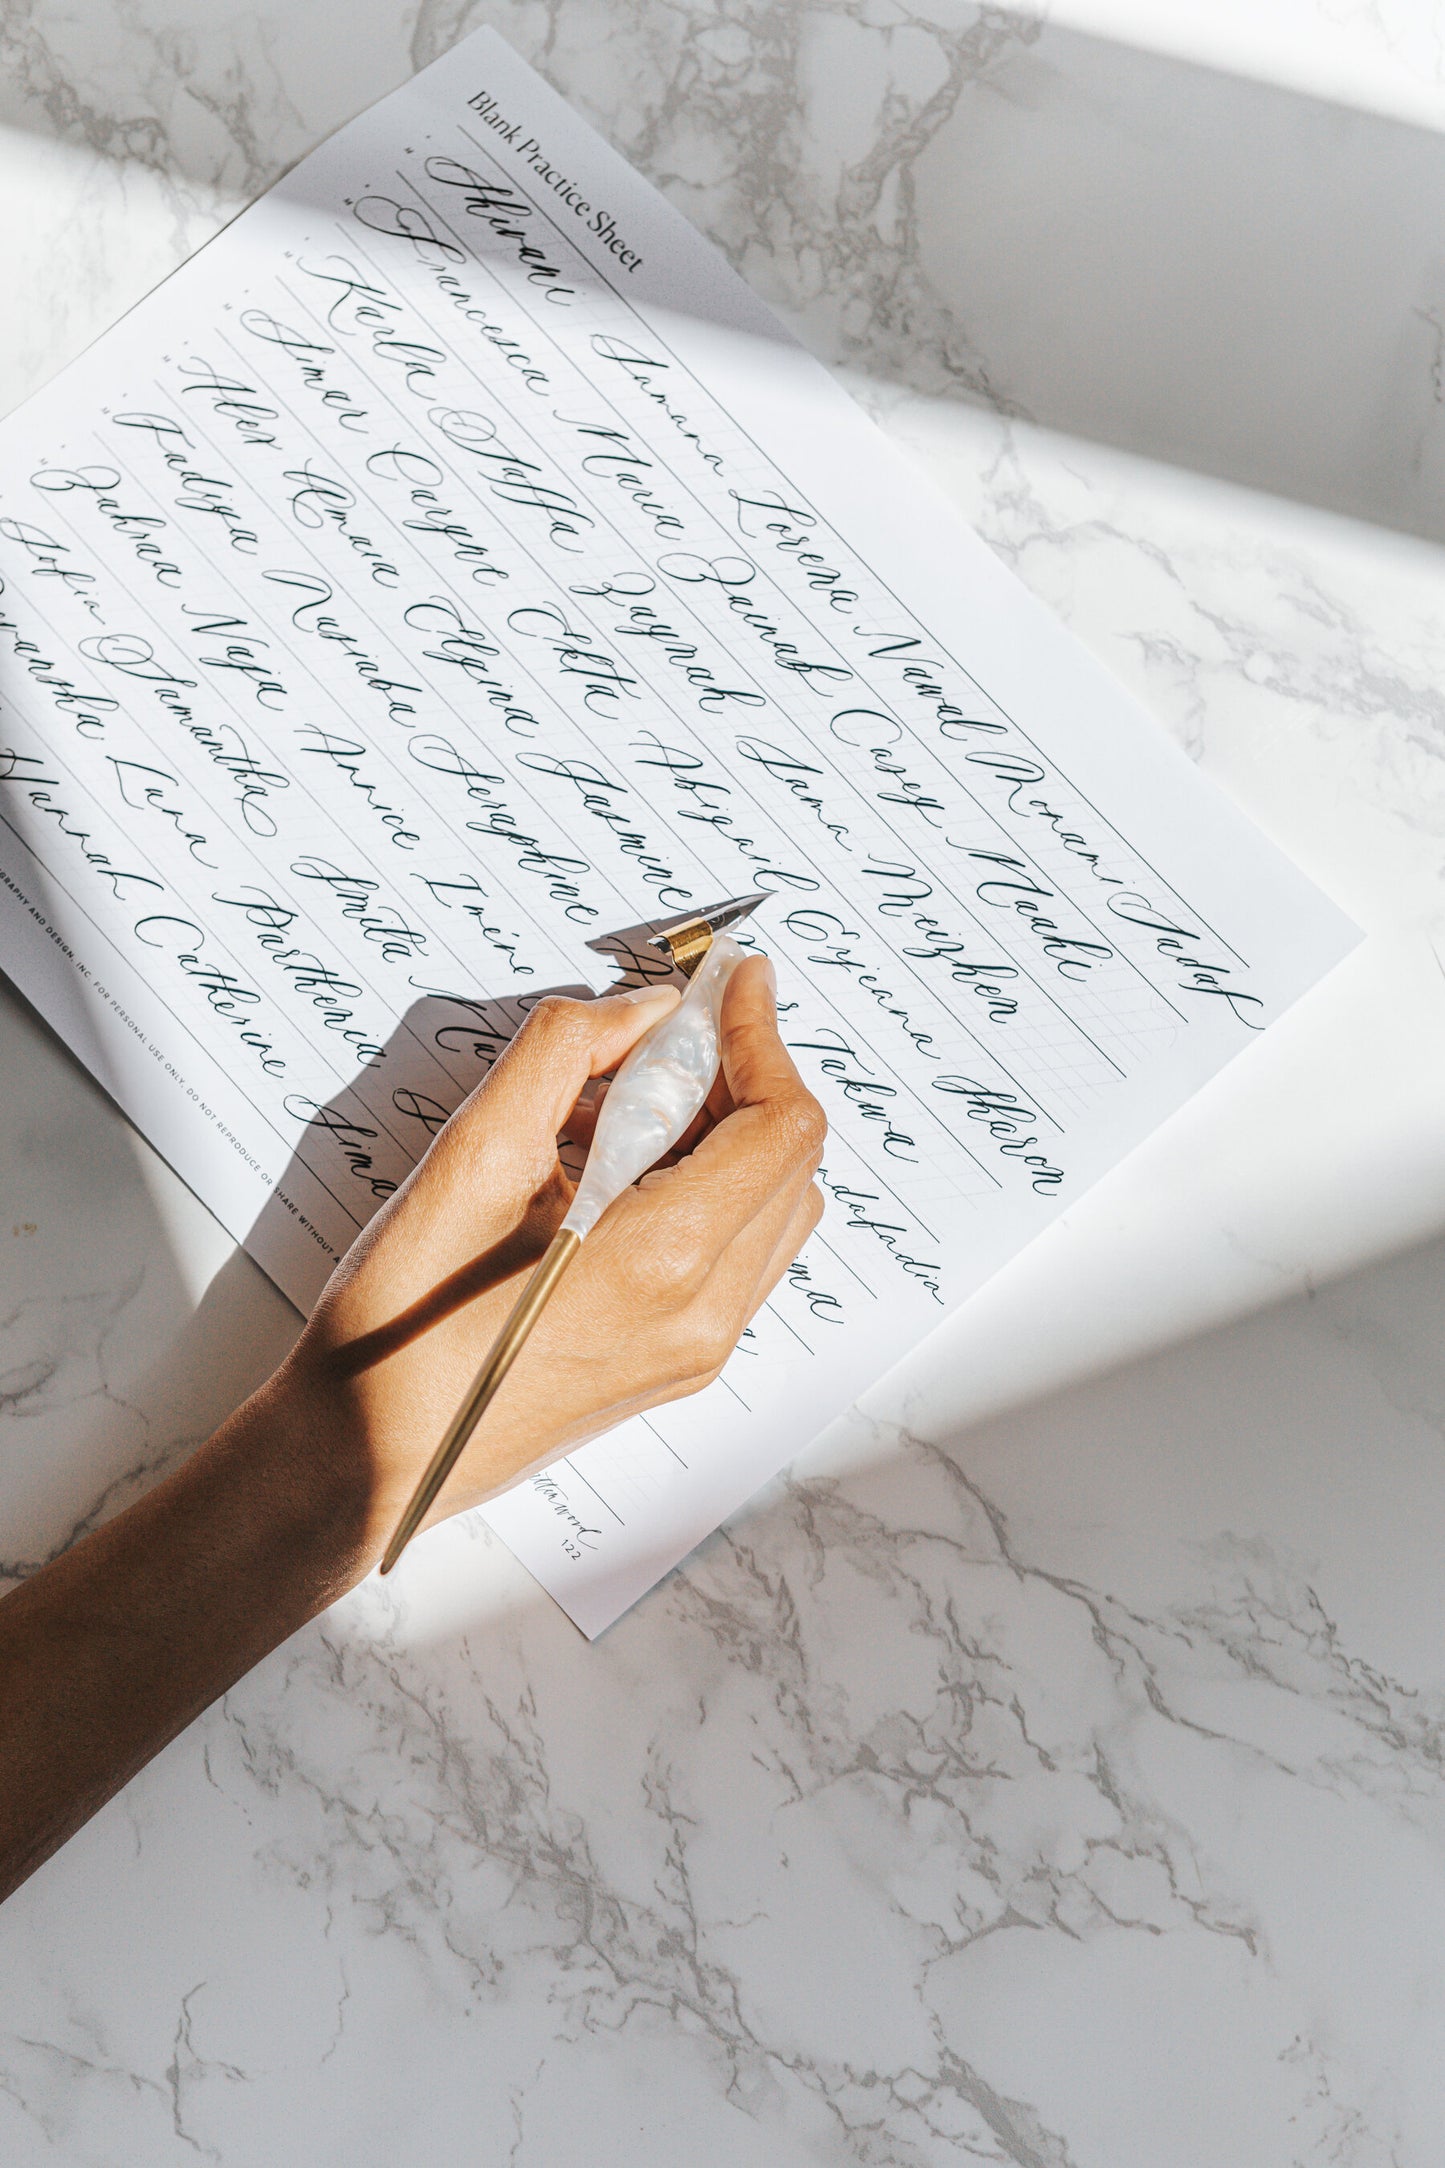 Blank Practice Sheet
Shivani Samana Lorena Nawal Monami Sadaf
Francesca Maria Zainab Casey Maahi
Karla Saffa Zaynah Sama Meizhen
Simar Caryne Ekta Abigail Sharon
Alex Amaia Elgina Jasmine Takwa
Nusiaba Seraphine
Zahraa Naja Annice
Sofia Samantha Smita
Luna Parthenia
Hannah Catherine Sima
AND DESIGN, INC. FOR PERSONAL USE ONLY. DO NOT REPRODUCE OR SHARE WITHOUT
122